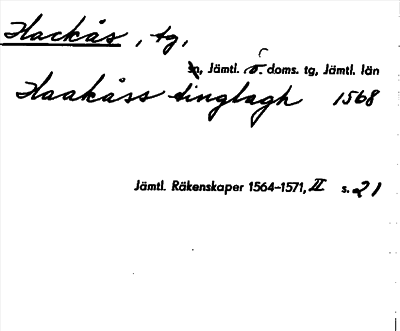 Hackås, tg,
sn, Jämtl. ö. doms. tg, Jämtl. län
Haakåss tinglagh 1568
Jämtl. Räkenskaper 1564-1571, II s. 21